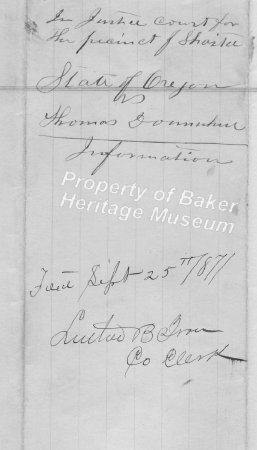 In Justice Court for
the precinct of
State of Oregon
vs
Thomas
Information
Property of Baker
Heritage Museum
Filed Sept 25th 1871
B
Co Clerk